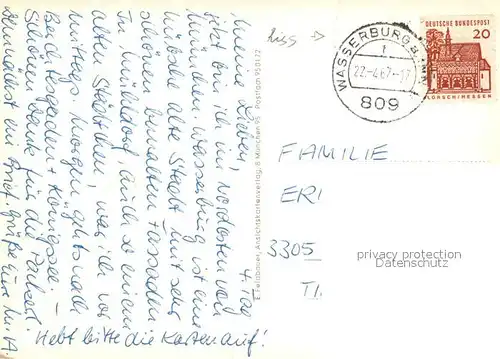 Meine Lieben, 4. Tag
jetzt bin ich im Nordosten von
München. Wasserburg ist eine
hübsche alte Stadt mit sehr
schönen bemalten Fassaden
In Mühldorf, auch so einem
alten Städtchen, war ich vor-
mittags. Morgen geht's nach
Berchtesgaden + Königssee. –
Schönen Dank für die Packerl
demnächst ein Brief. Grüße Eure
Hebt bitte die Karten auf!
E. Felzbauer, Ansichtskartenverlag, 8 München 95 Postfach 950172
Riss
WASSERBURG a. INN
1
22.-4.67-17
809
DEUTSCHE BUNDESPOST
20
LORSCH/HESSEN
FAMILIE
ERI
3305
TI
privacy protection
Datenschutz